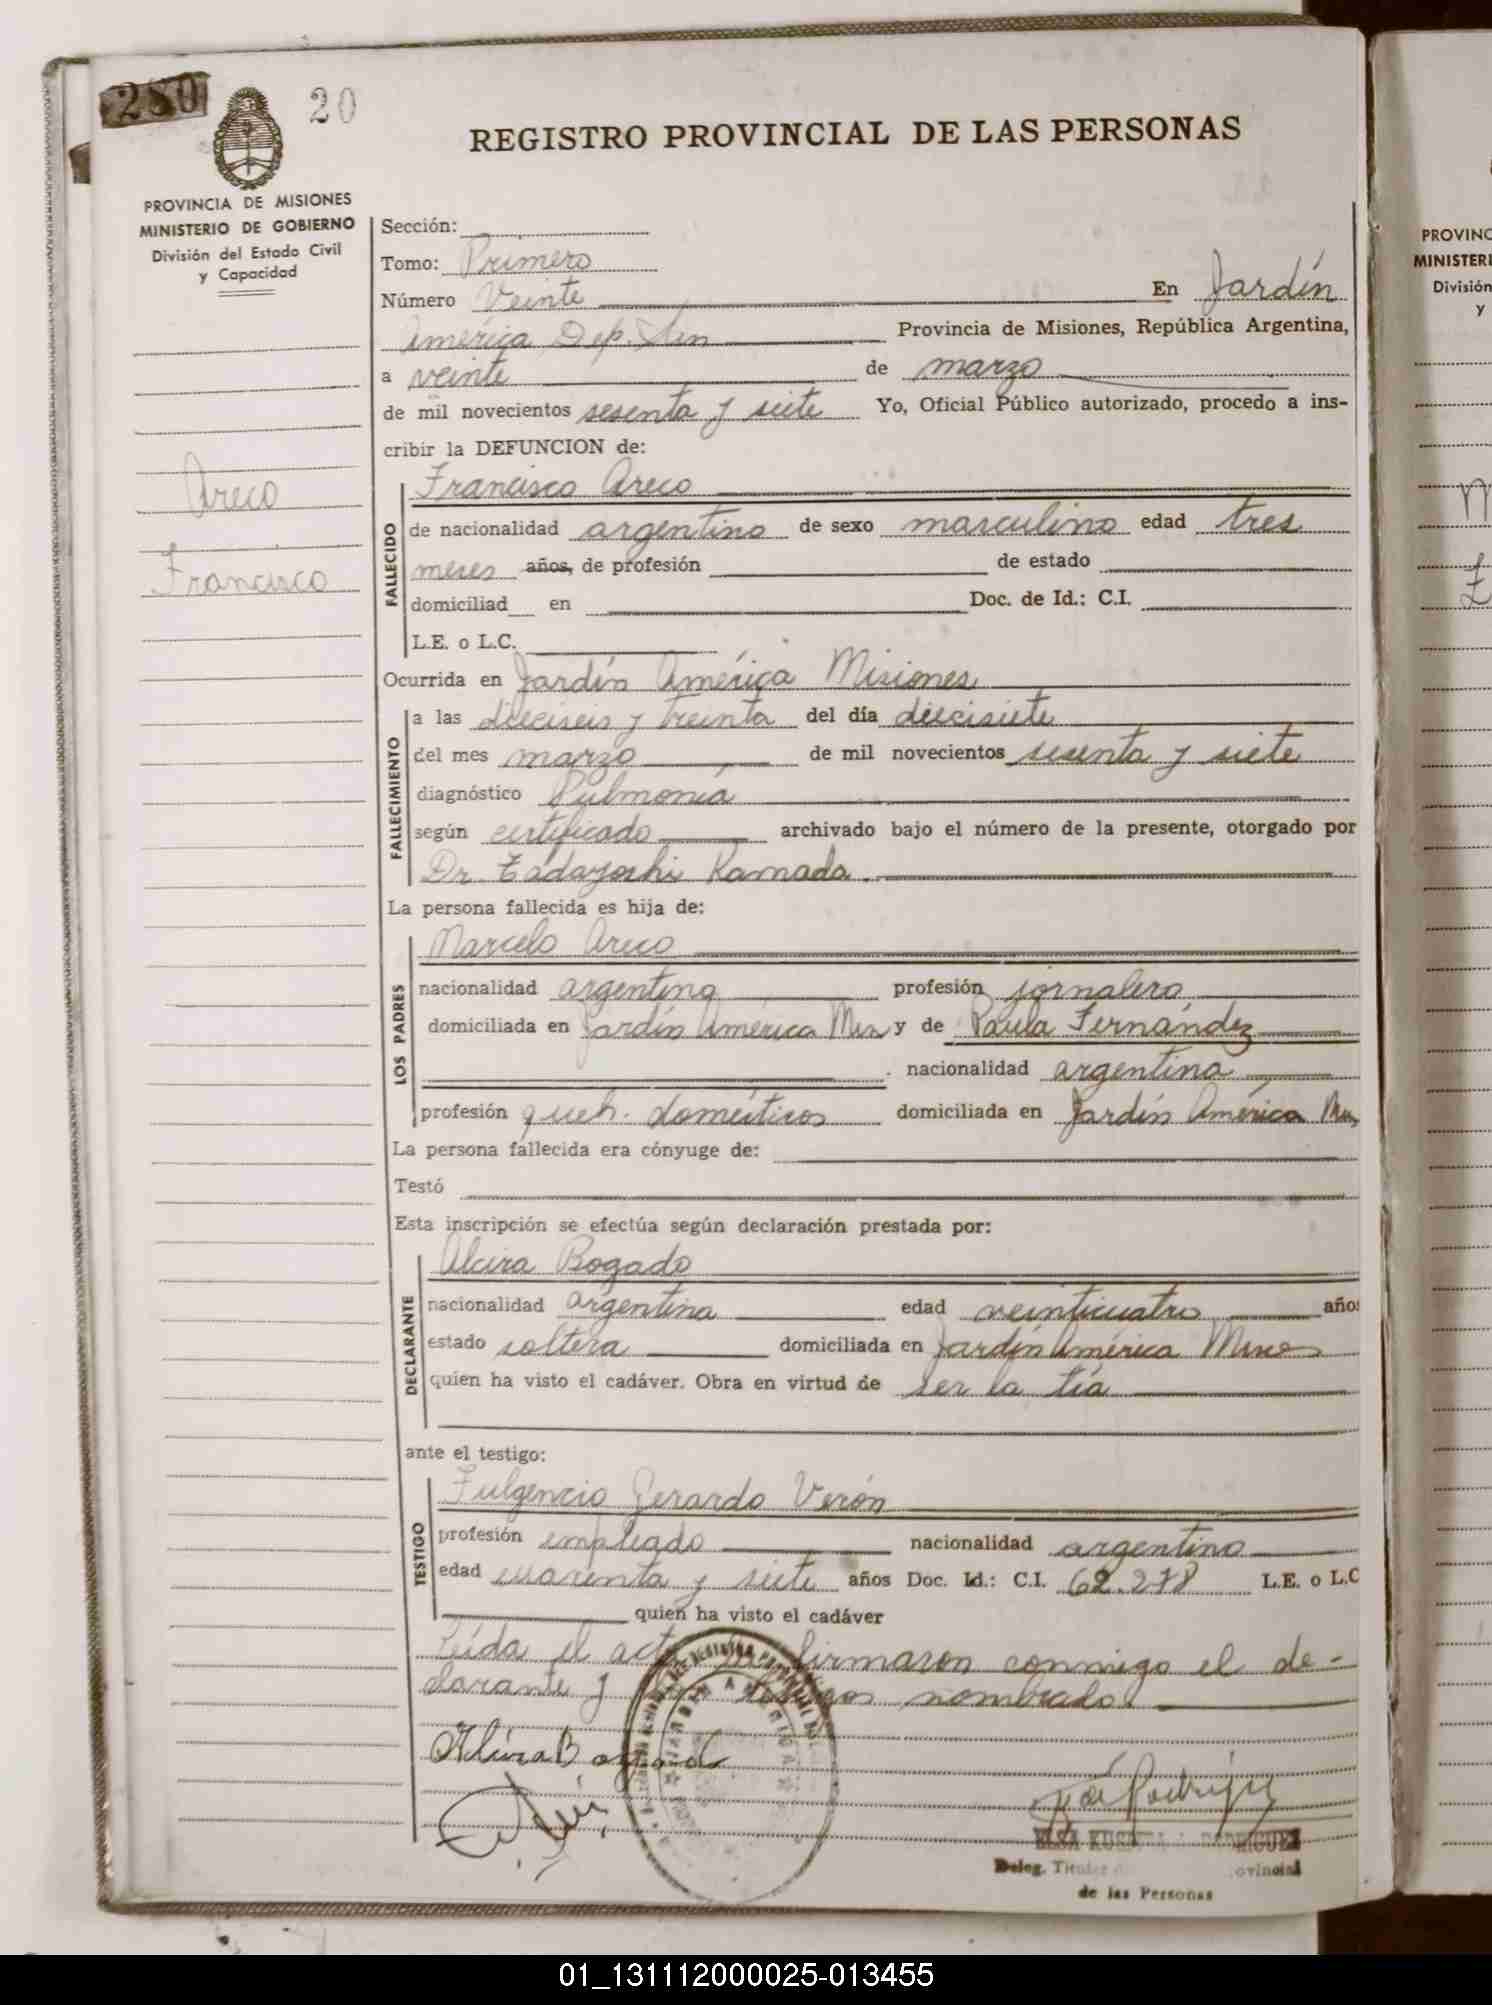 280
20
REGISTRO PROVINCIAL DE LAS PERSONAS
PROVINCIA DE MISIONES
MINISTERIO DE GOBIERNO
División del Estado Civil
y Capacidad
Areco
Francisco
Sección:
Tomo: Primero
Número Veinte En Jardín
América Dep. Provincia de Misiones, República Argentina,
a veinte de marzo
de mil novecientos sesenta y siete Yo, Oficial Público autorizado, procedo a ins-
cribir la DEFUNCION de:
FALLECIDO
Francisco Areco
de nacionalidad argentino de sexo masculino edad tres
meses años, de profesión de estado
domiciliad en Doc. de Id.: C.I.
L.E. o L.C.
Ocurrida en Jardín América Misiones
FALLECIMIENTO
a las dieciseis y treinta del día diecisiete
del mes marzo de mil novecientos sesenta y siete
diagnóstico Pulmonía
según certificado archivado bajo el número de la presente, otorgado por
Dr. Tadayoshi Kamada.
La persona fallecida es hija de:
LOS PADRES
Marcelo Areco
nacionalidad argentino profesión jornalero
domiciliada en Jardín América y de Paula Fernández
nacionalidad argentina
profesión queh. domésticos domiciliada en Jardín América
La persona fallecida era cónyuge de:
Testó
Esta inscripción se efectúa según declaración prestada por:
DECLARANTE
Alcira Bogado
nacionalidad argentina edad veinticuatro años
estado soltera domiciliada en Jardín América
quien ha visto el cadáver. Obra en virtud de ser la tía
ante el testigo:
TESTIGO
Fulgencio Gerardo Verón
profesión empleado nacionalidad argentino
edad cuarenta y siete años Doc. Id.: C.I. 62.278 L.E. o L.C
quien ha visto el cadáver
Leída el acta firmaron conmigo el de-
clarante y nombrado.
Alcira Bogado
Rodríguez
ELSA RODRIGUEZ
Deleg. Titular ovincial
de las Personas
PROVINC
MINISTERI
División
y
01_131112000025-013455